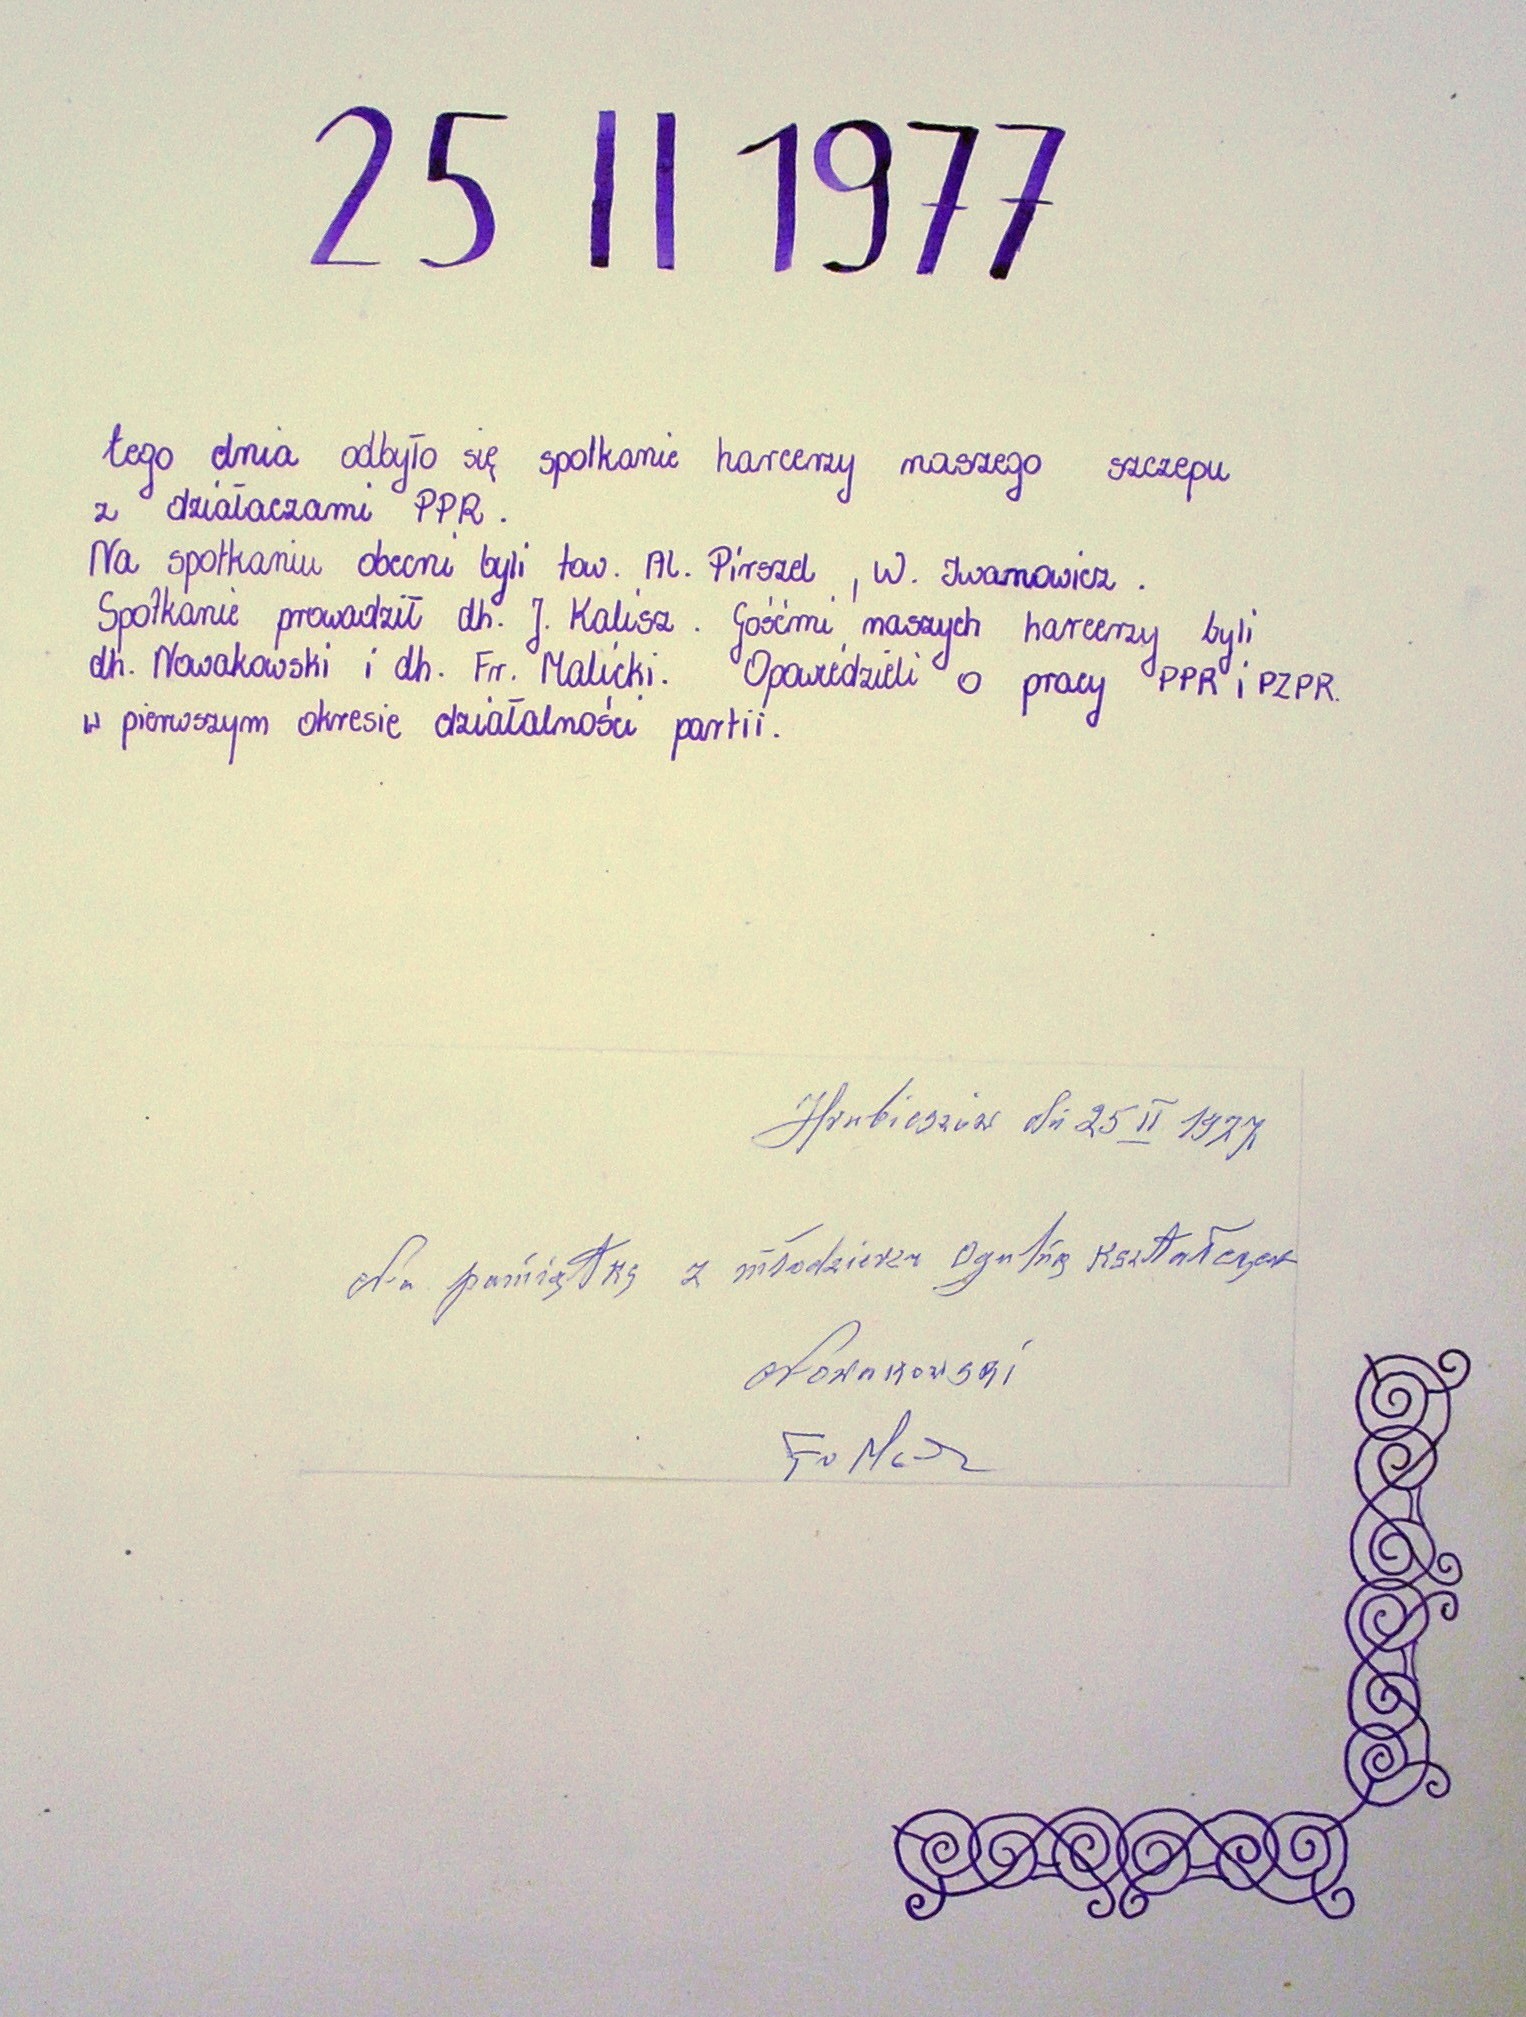 25 II 1977
tego dnia odbyło się spotkanie harcerzy naszego szczepu
z działaczami PPR.
Na spotkaniu obecni byli tow. Al. Pirszel, W. Iwanowicz.
Spotkanie prowadził dh. J. Kalisz. Gośćmi naszych harcerzy byli
dh. Nowakowski i dh. Fr. Malicki. Opowiedzieli o pracy PPR i PZPR.
w pierwszym okresie działalności partii.
Hrubieszów dn 25 II 1977
Na pamiątkę z młodzieżą Ogulną kształcąca
Nowakowski